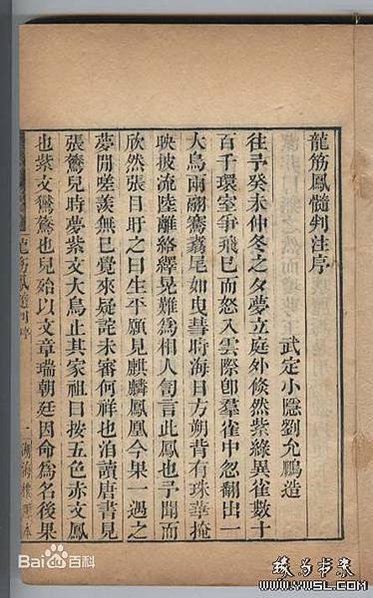 龍筋鳳髓判注序
武定小隱劉允鵬造
往予癸未仲冬之夕夢立庭外倏然紫綠異雀數十
百千環室爭飛已而怒入雲際卽羣雀中忽翻出一
大鳥兩翮騫翥尾如曳彗時海日方朔背有珠華掩
映披流陸離絡繹晃難爲相人訇言此鳳也予聞而
欣然張目盱之曰生平願見麒麟鳳凰今果一遇之
夢閒嗟羨無已覺來疑詫未審何祥也洎讀唐書見
張鷟兒時夢紫文大鳥止其家祖曰按五色赤文鳳
也紫文鸑鷟也兒始以文章瑞朝廷因命爲名後果
龍筋鳳髓判序
一
湖海樓雕本
Bai du 百科
www.YWSL.com